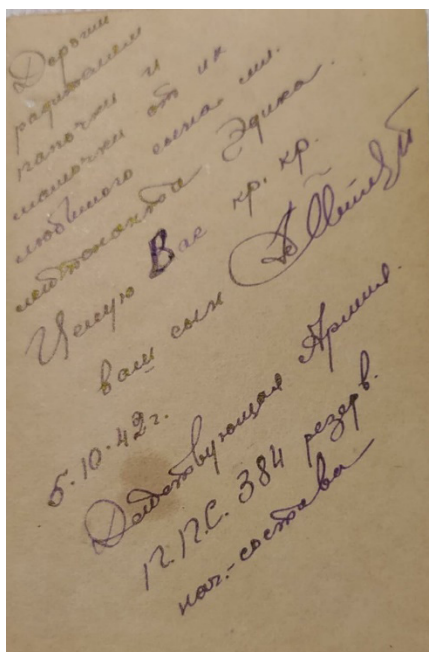 Дорогим
родителям
папочке и
мамочке от их
любимого сына мл.
лейтенанта Эдика.
Целую Вас кр. кр.
ваш сын
5.10.42г.
Действующая Армия.
П.П.С. 384 резерв.
нач.-состава